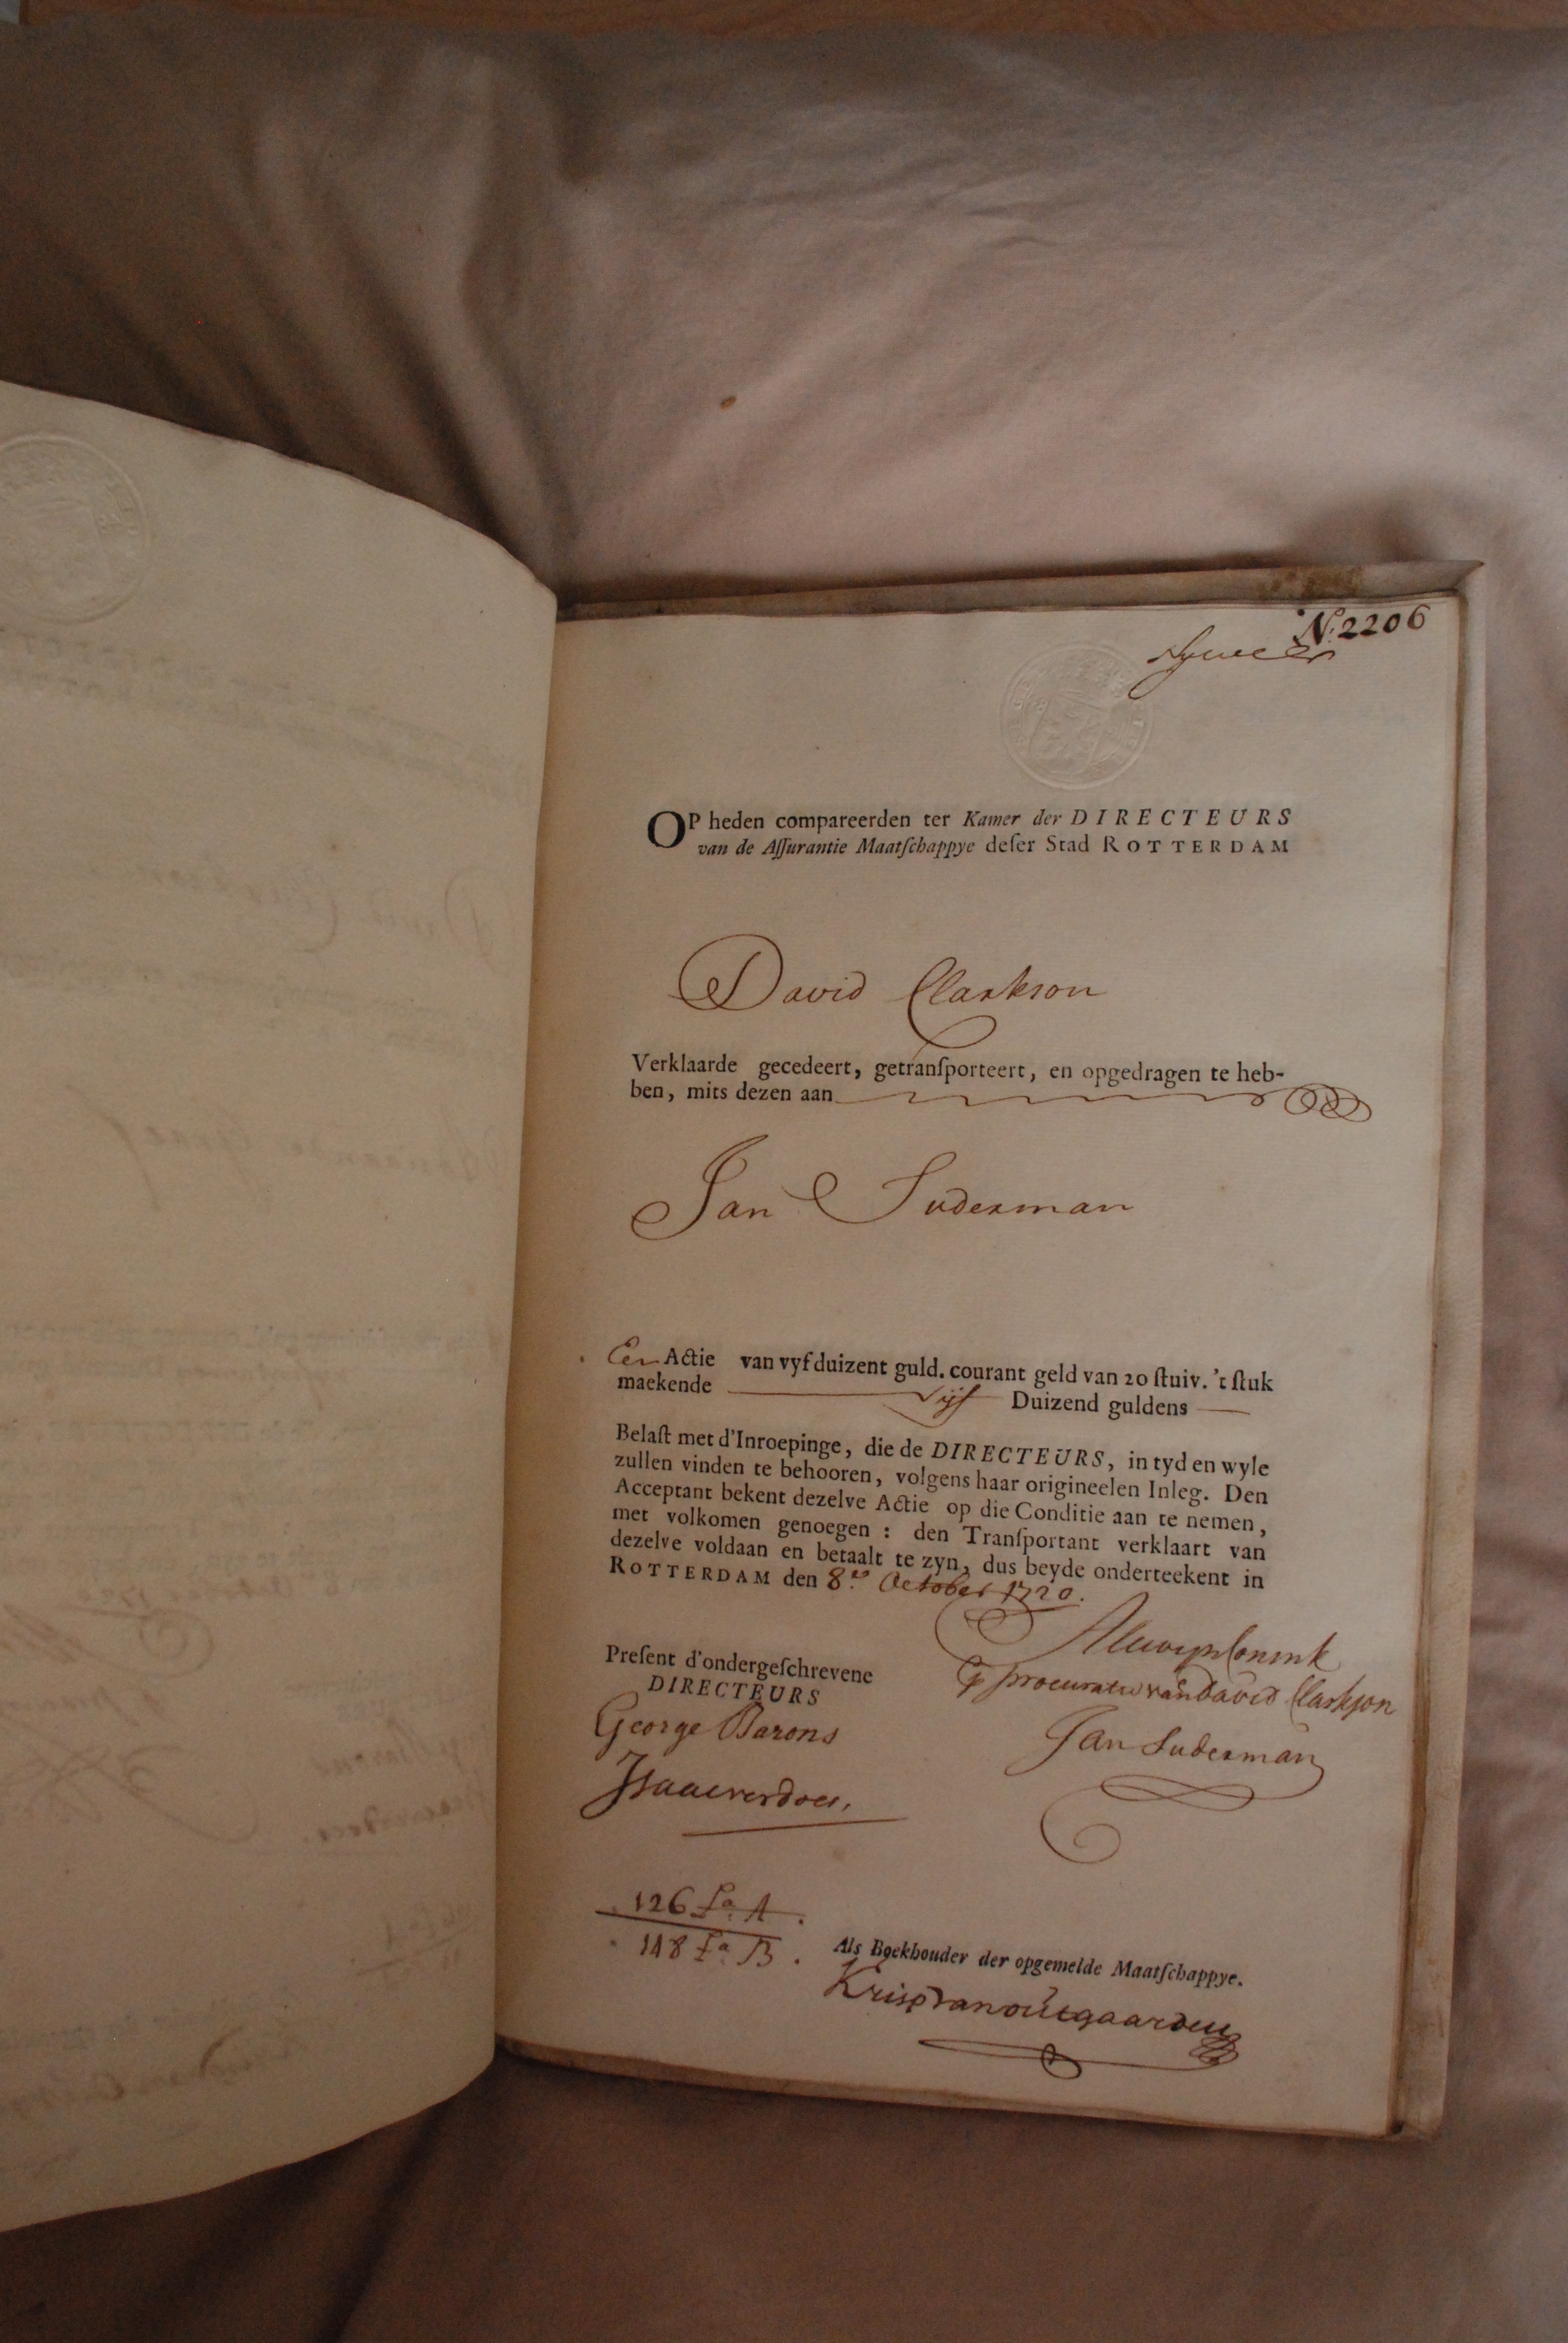 N:2206
OP heden compareerden ter Kamer der DIRECTEURS
van de Aſſurantie Maatſchappye deſer Stad ROTTERDAM
David Clarkson
Verklaarde gecedeert, getranſporteert, en opgedragen te heb-
ben, mits dezen aan
Jan Suderman
Een Actie van vyf duizent guld. courant geld van 20 ſtuiv. 't ſtuk
maekende Vijf Duizend guldens
Belaſt met d'Inroepinge, die de DIRECTEURS, in tyd en wyle
zullen vinden te behooren, volgens haar origineelen Inleg. Den
Acceptant bekent dezelve Actie op die Conditie aan te nemen,
met volkomen genoegen : den Tranſportant verklaart van
dezelve voldaan en betaalt te zyn, dus beyde onderteekent in
ROTTERDAM den 8en October 1720.
Preſent d'ondergeſchrevene
DIRECTEURS
George Barons
Isaacverdoes,
procuratie van David Clarkson
Jan Suderman
126 La A.
118 La B.
Als Boekhouder der opgemelde Maatſchappye.